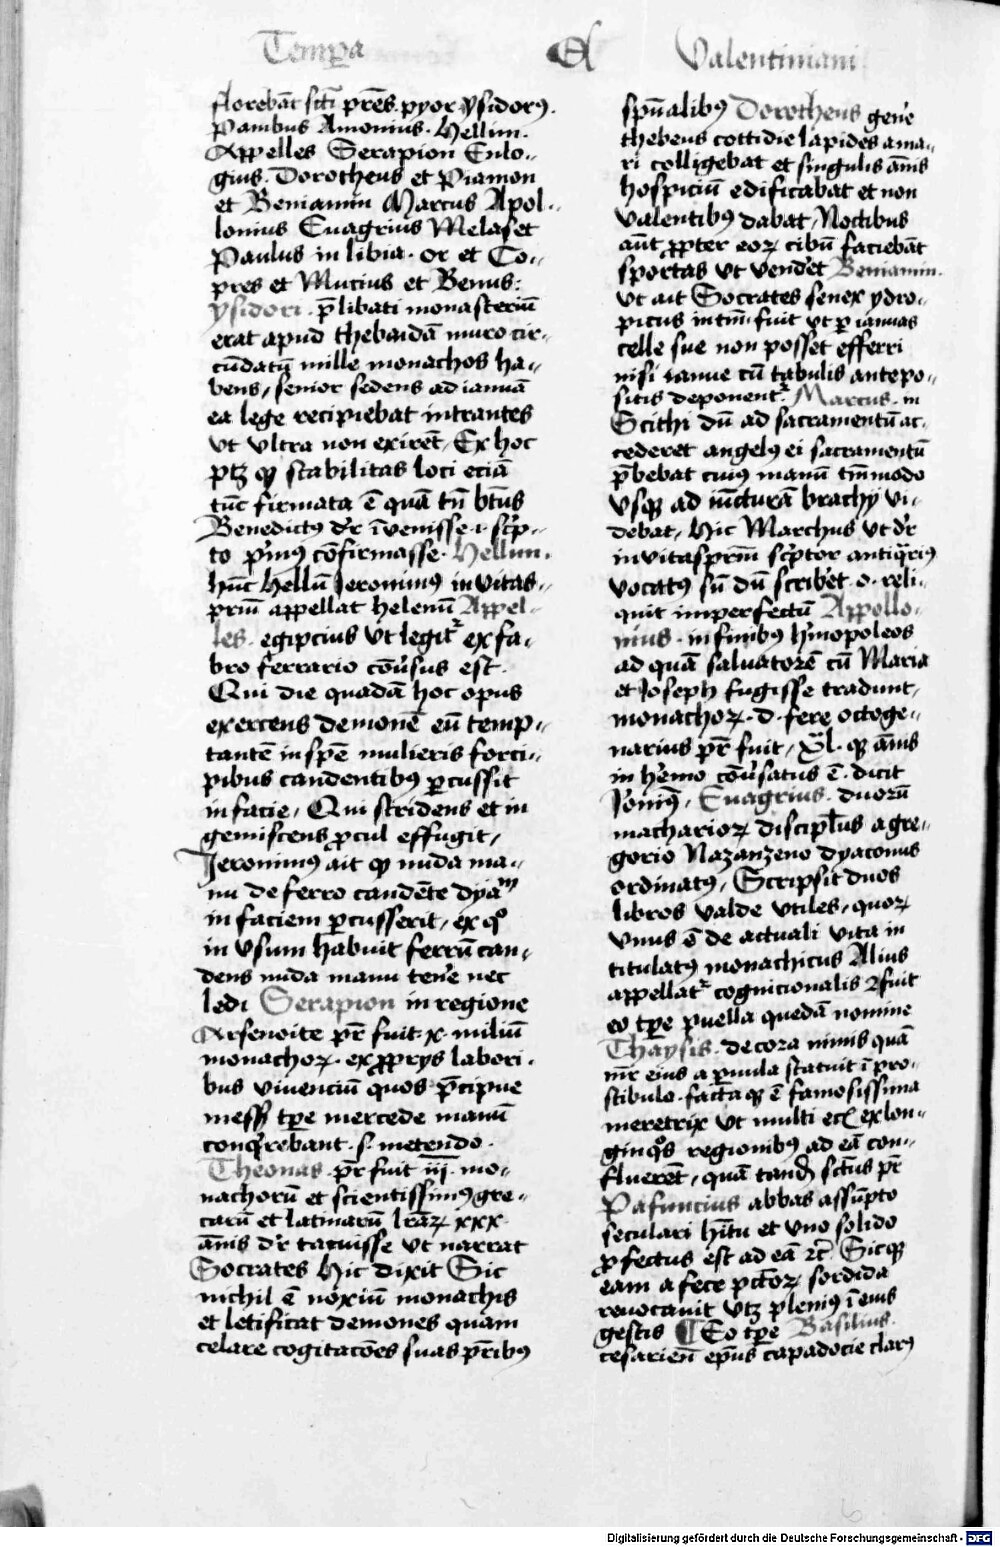 Tempora Et Valentiniani
florebāt sctī prēs. pyor ysidorꝰ.
Pambus Amonius. Hellim.
Appelles Serapion Eulo-
gius. Dorotheus et Piamon
et Beniamin Marcus Apol-
lonius Euagrius Melas et
Paulus in libia. or et Co-
pres et Mucius et Benus:
ysidori. p̄libati monasteriū
erat apud thebaidā muro cir-
cūdatū mille monachos ha-
bens, senior sedens ad ianuā
ea lege recipiebat intrantes
ut ultra non exirēt, Ex hoc
ptꝫ qꝫ stabilitas loci eciā
tūc firmata ē quā tn̄ btūs
Benedictꝰ dr̄ īvenisse. i. scp̄-
to pͥmꝰ cōfirmasse. Hellim.
hūc Hellū Jeronimꝰ in vitas-
priū appellat helenū Appel-
les. egipcius ut legitᷣ ex fa-
bro ferrario cōvsus est.
Qui die quadā hoc opus
exercens demonē eū temp-
tantē in spē mulieris forci-
pibus candentibꝰ ꝑcussit
in facie, Qui stridens et in
gemiscens ꝓcul effugit,
Jeronimꝰ ait qꝫ nuda ma-
nu de ferro candēte dyām
in faciem ꝑcusserit, ex qͦ
in usum habuit ferrū can-
dens nuda manu tenēe nec
ledi Serapion in regione
Arsenoite pr̄ fuit. x. miliū
monachoꝝ. ex ꝓprys labori-
bus vivenciū quos p̄cipue
messꝭ tꝑe mercede manuū
conqͥrebant. s. metendo.
Theonas. pr̄ fuit iīī. mo-
nachorū et scientissimꝰ gre-
carū et latinarū lr̄aꝝ xxx.
ānis dr̄ tacuisse ut narrat
Socrates Hic dixit Sic
nichil ē noxiū monachis
et letificat demones quam
celare cogitacōes suas prībꝰ
spūalibꝰ Dorotheus genēe
thebeus cottidie lapides ama-
ri colligebat et singulis ānis
hospiciū edificabat et non
valentibꝰ dabat, Noctibus
aūt ꝓpter eoꝝ cibū faciebāt
sportas ut vendet Beniamin.
ut ait Socrates senex ydro-
picus in tm̄ fuit ut ꝑ ianuas
celle sue non posset efferri
nisi ianue cū tabulis antepo-
sitis deponentᷣ. Marcus. in
Scithi dū ad sacramentū ac-
cederet angelꝰ ei sacramentū
p̄bebat cuiꝰ manū tm̄modo
usqꝫ ad iūcturā brachy vi-
debat, Hic Marchus ut dr̄
in vitasprm̄ scp̄tor antiqͥriꝰ
vocatꝰ sū dū scribēt. o. reli-
quit imperfectū Appollo-
nius. in finibꝰ hm̄opoleos
ad quā salvatorē cū Maria
et Joseph fugisse tradunt,
monachoꝝ. d. fere octoge-
narius pr̄ fuit, Xl. qꝫ ānis
in hēmo cōvsatus ē. dicit
Jōnimꝰ, Euagrius. duorū
macharioꝝ discip̄lus a gre-
gorio Nazanzeno dyaconus
ordinatꝰ, Scripsit duos
libros valde utiles, quoꝝ
unus ē de actuali vita in
titulatꝰ monachicus Alius
appellatᷣ cognicionalis ⁊ fuit
eo tꝑe puella quedā nomine
Thaysis. decora nimis quā
mr̄ eius a ꝑvula statuit ī pro-
stibulo. facta qꝫ ē famosissima
meretrix ut multi ecꝭ ex lon-
ginqͦs regionibꝰ ad eā con-
fluerēt, quā tandꝭ sctūs pr̄
Pafuncius abbas assūpto
seculari hītu et uno solido
ꝓfectus est ad eā ⁊c̄. Sicqꝫ
eam a fece pctōꝝ sordida
revocavit utꝫ pleniꝰ ī eius
gestis ¶ Eo tꝑe Basilius.
cesarieñ ep̄us capadocie clarꝰ
Digitalisierung gefördert durch die Deutsche Forschungsgemeinschaft - DFG